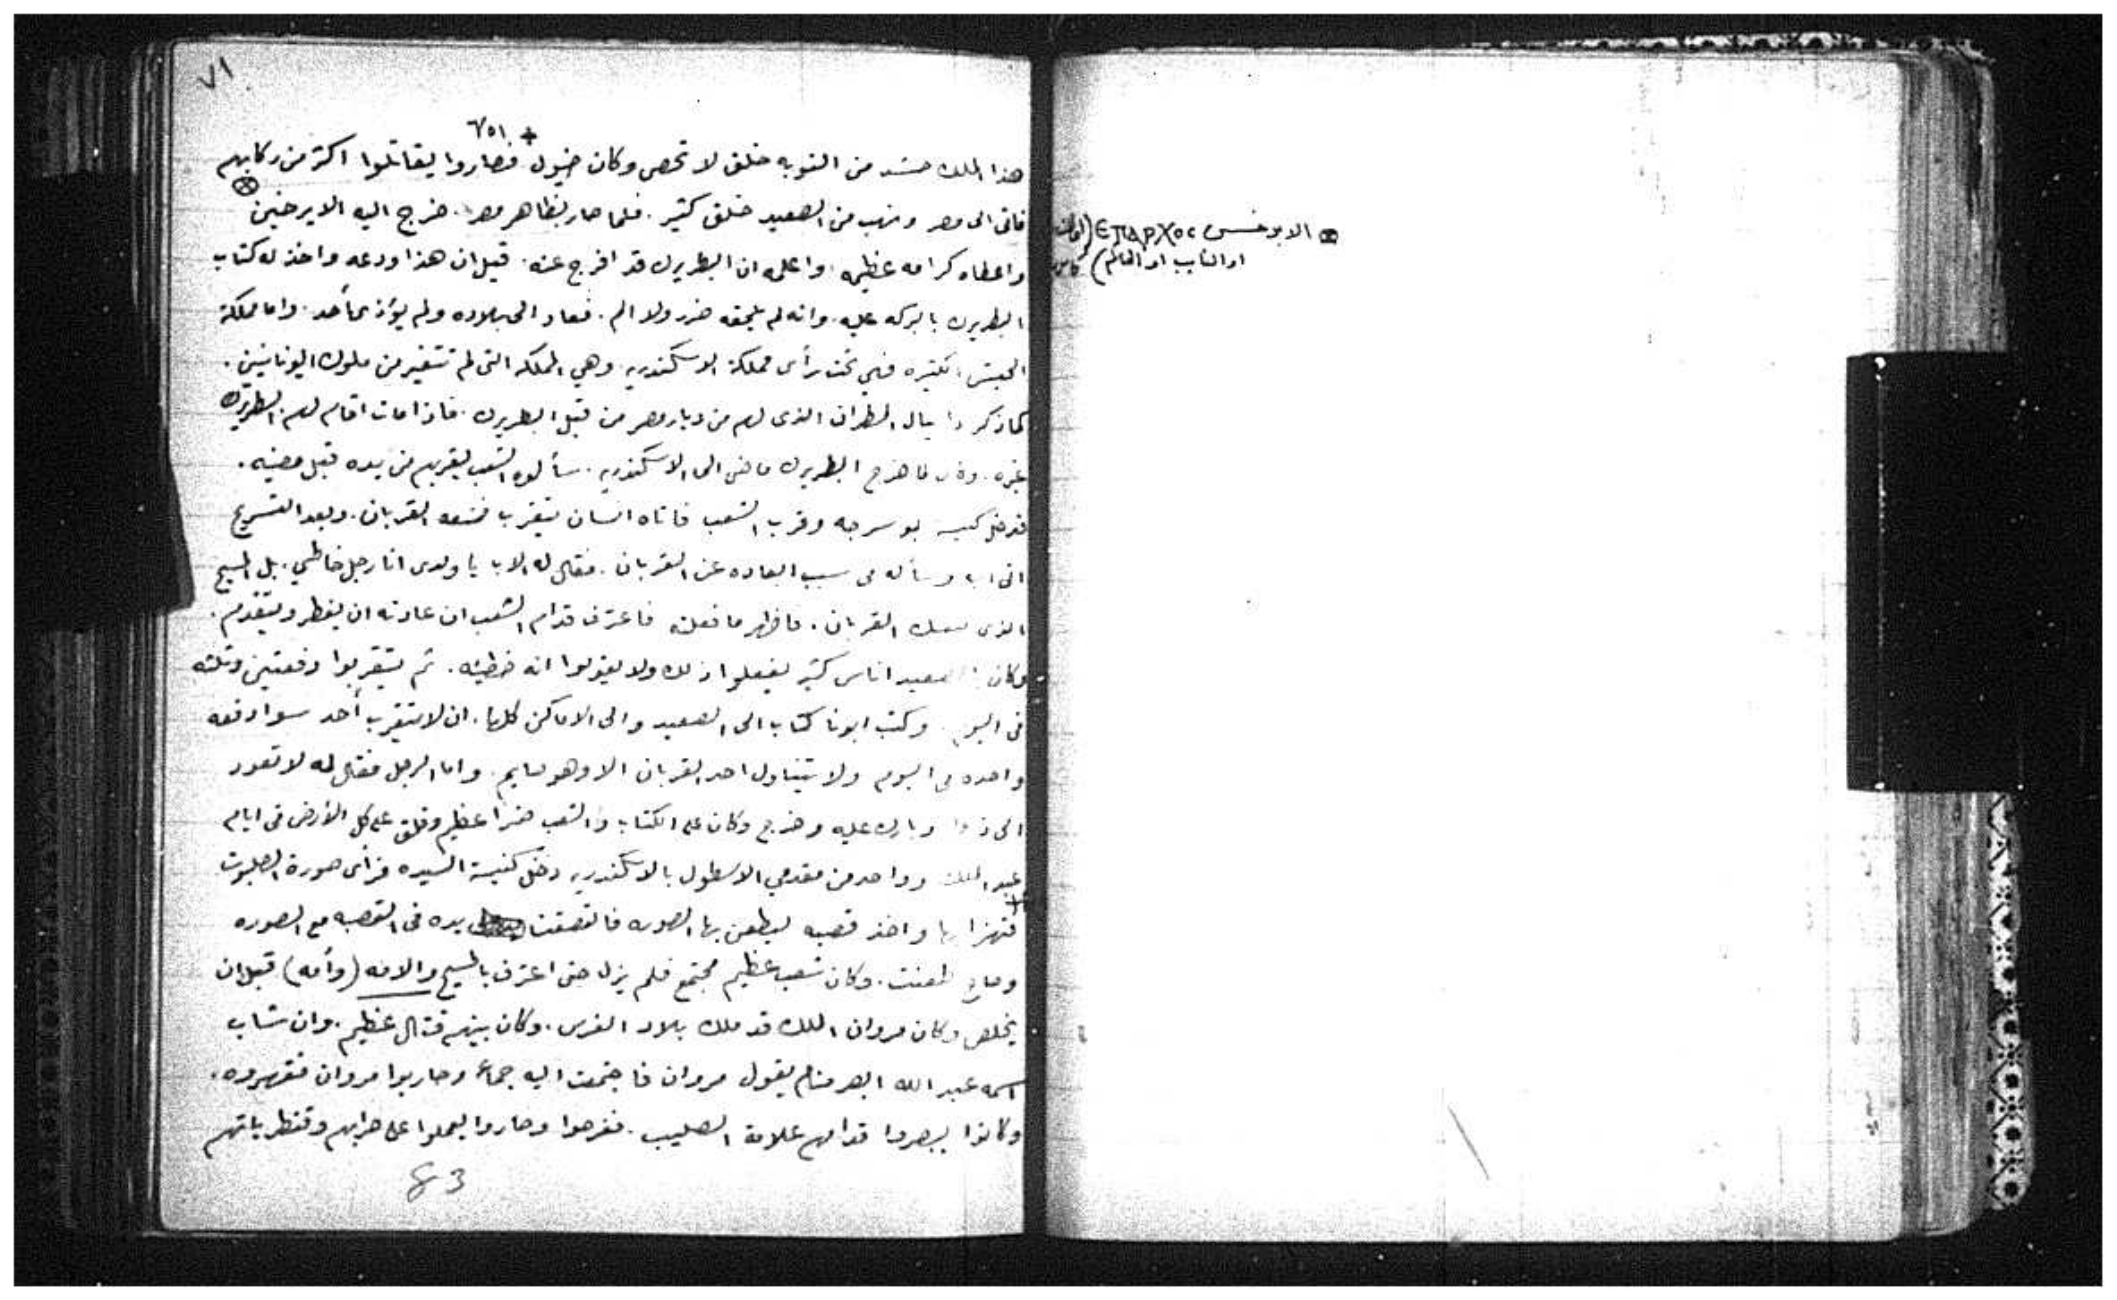 ٧١
٧٥١ +
هذا الملك حشد من النوبه خلق لا تحصى وكان خيول فصاروا يقاتلوا اكثر من ركابهم
فاتى الى مصر ونهب من الصعيد خلق كثير. فلما صار بظاهر مصر. خرج اليه الابرخس
واعطاه كرامه عظيمه. واعلمه ان البطريرك قد افرج عنه. قيل ان هذا ودعه واخذ له كتاب
البطريرك بالبركه عليه. وانه لم يلحقه ضرر ولا الم. فعاد الى بلاده ولم يؤذ احد. واما مملكة
الحبش الكثيره فهي تحت رأى مملكة الاسكندريه. وهي المملكه التى لم تتغير من ملوك اليونانيين.
كما ذكر دانيال المطران الذى لهم من ديار مصر من قبل البطريرك. فاذا مات اقام لهم البطريرك
غيره. ولما خرج البطريرك ماضى الى الاسكندريه. سألوه الشعب يقربهم من يده قبل مضيه.
فدخل كنيسة بو سرجه وقرب الشعب فاتاه انسان يتقرب فمنعه القربان. وبعد التسريح
اتى اليه وسأله فى سبب ابعاده عن القربان. فقال له الاب يا ولدى انا رجل خاطى. بل المسيح
الذى منعك القربان. فاظهر ما فعلته فاعترف قدام الشعب ان عادته ان يفطر ويتقدم.
وكان بالصعيد اناس كثير يفعلوا ذلك ولا يقولوا انه خطيئه. ثم يتقربوا دفعتين وثلثه
فى اليوم. وكتب ابونا كتاب الى الصعيد والى الاماكن كلها. ان لا يتقرب أحد سوا دفعه
واحده فى اليوم ولا يتناول احد القربان الا وهو صايم. واما الرجل فقال له لا تعود
الى هذا وبارك عليه وخرج وكان على الكتاب والشعب ضرا عظيم وقلق على كل الأرض فى ايام
عبد الملك وواحد من مقدمي الاسطول بالاسكندريه دخل كنيسة السيده فرأى صورة الصلبوت
فتهزا بها واخذ قصبه ليطعن بها الصوره فالتصقت يده فى القصبه مع الصوره
وصاح طعنت. وكان شعب عظيم مجتمع فلم يزل حتى اعترف بالمسيح والامه (وأمه) قبل ان
يخلص وكان مروان الملك قد ملك بلاد الفرس. وكان بينهم قتال عظيم. وان شاب
اسمه عبد الله ابصر منام يقول مروان فاجتمعت اليه جماعه وحاربوا مروان فقهروه.
وكانوا يبصروا قدامهم علامة الصليب. ففرحوا وصاروا يعملوا على حرابهم وقنطرياتهم
83
الابرخس ⲉⲡⲁⲣⲭⲟⲥ
او النايب او الحاكم)